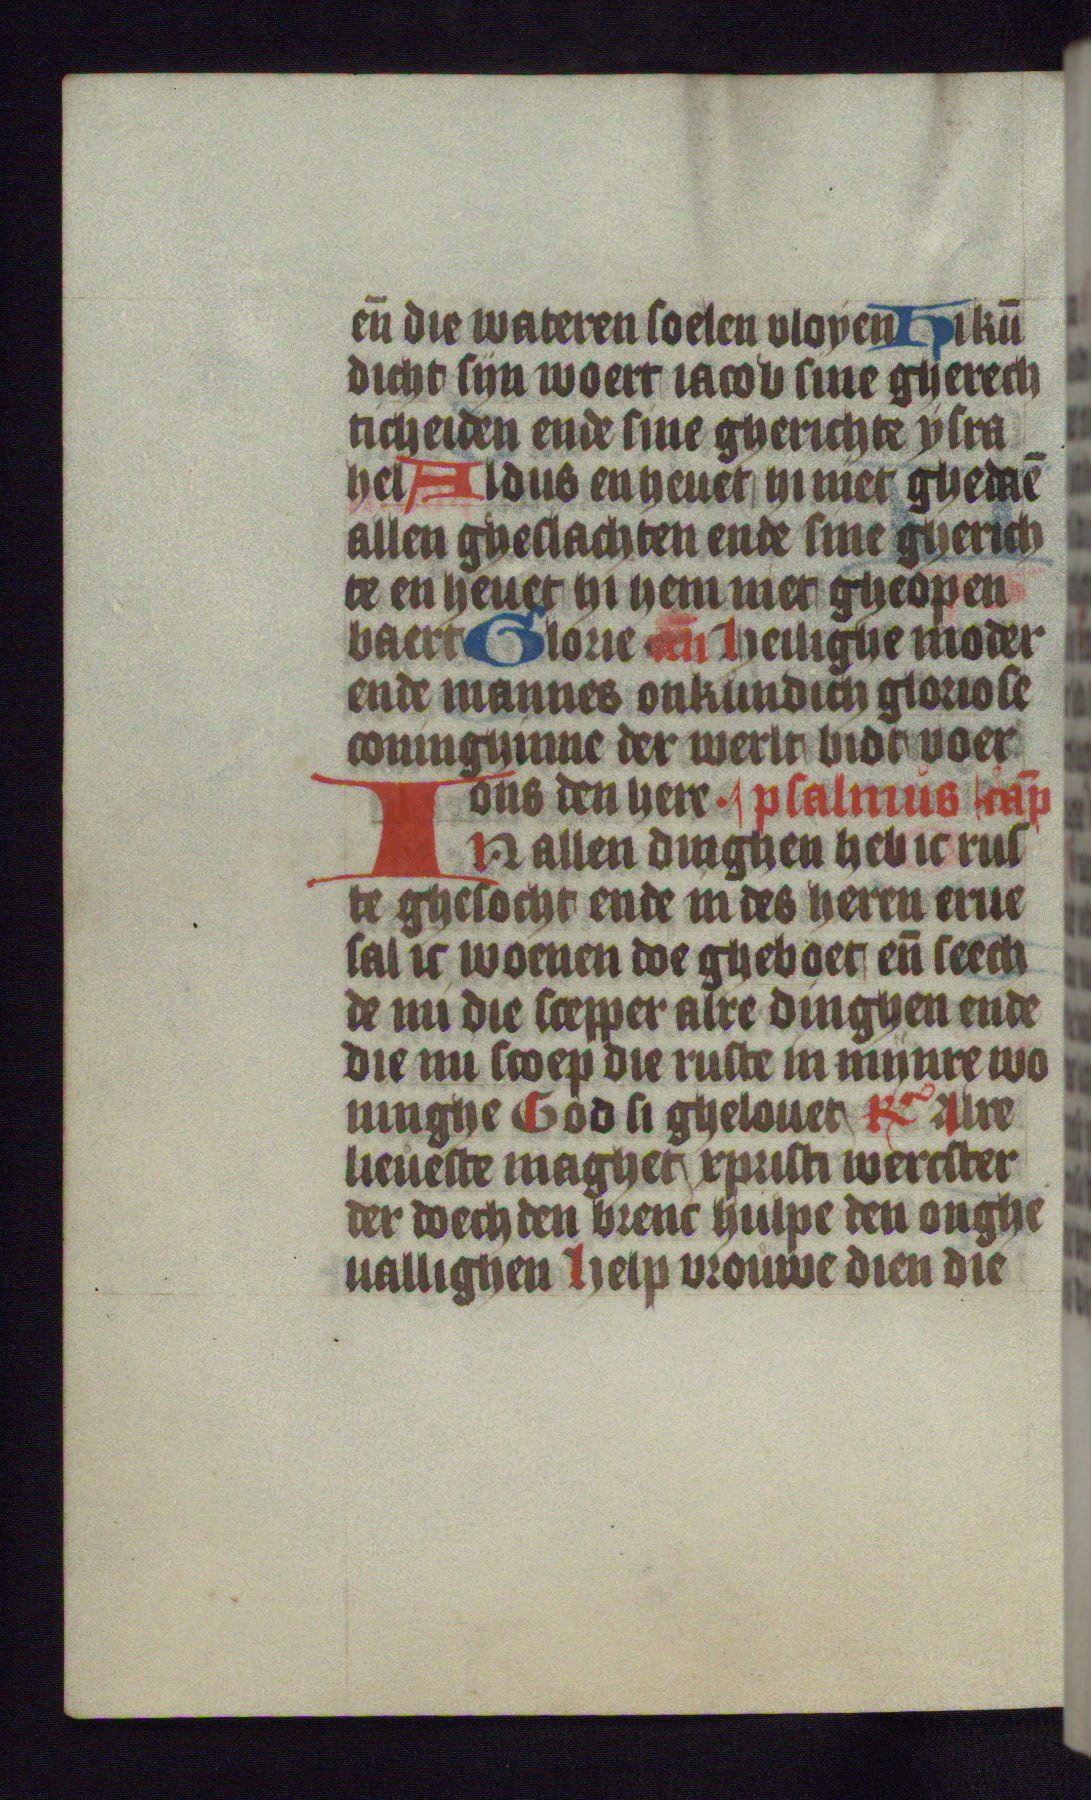 en̄ die wateren soelen vloyen Hi kū
dicht sijn woert iacob sine gherech
ticheiden ende sine gherichte ysra
hel Aldus en heuet hi niet ghedaē
allen gheslachten ende sine gherich
te en heuet hi hem niet gheopen
baert Glorie an̄ heilighe moder
ende mannes onkundich gloriose
coninghinne der werlt bidt voer
ons den here psalmus cap̄
In allen dinghen heb ic rus
te ghesocht ende in des heren erue
sal ic woenen doe gheboet en̄ seech
de mi die scepper alre dinghen ende
die mi scoep die ruste in mijnre wo
ninghe God si ghelouet Rͫ Alre
lieueste maghet xpristi wercster
der doechden brenc hulpe den onghe
uallighen help vrouwe dien die